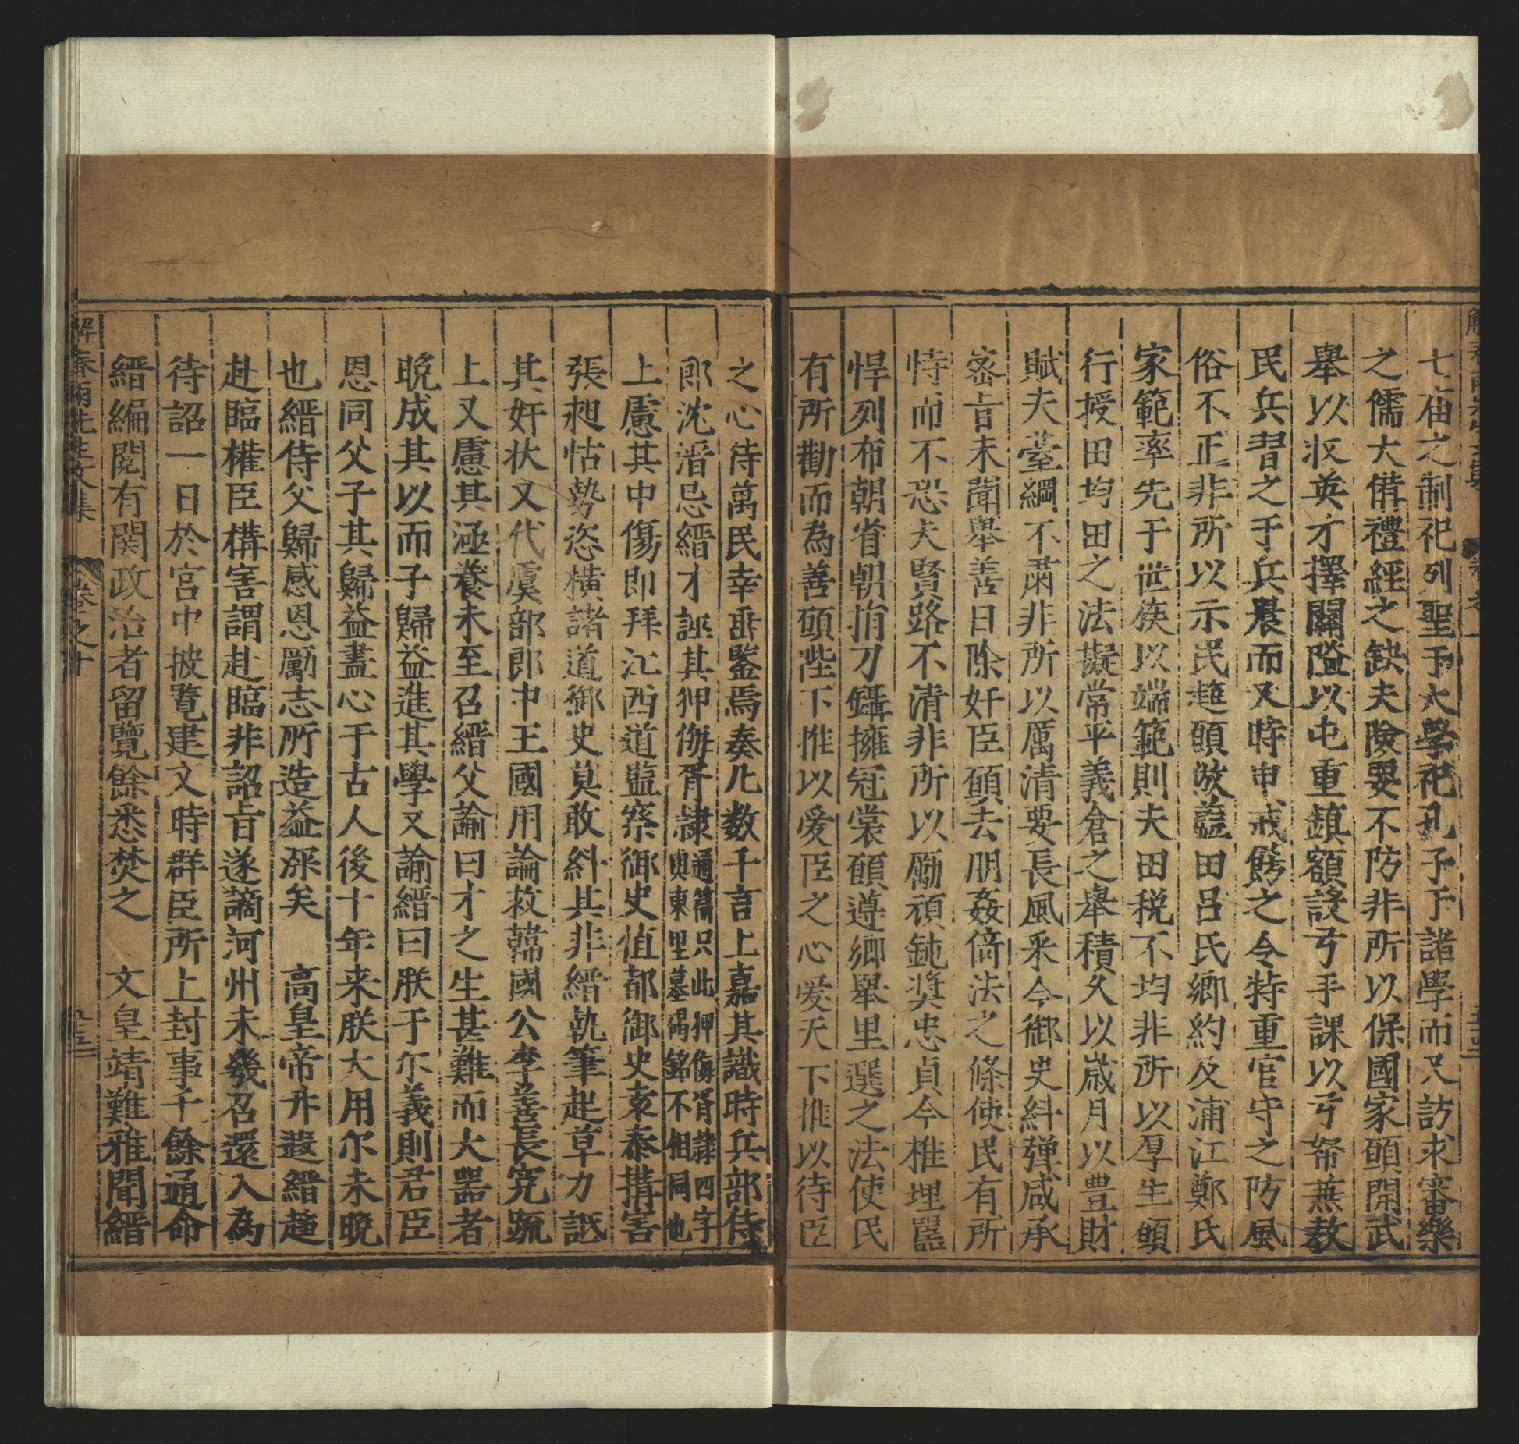 七庙之制祀列聖于太學祀孔子于諸學而又訪求審樂
之儒大備禮經之缺夫險要不防非所以保國家頭開武
舉以収英才擇關隘以屯重鎮額設弓手課以弓弩蕪教
民兵習之于兵農而又時申戒餝之令特重官守之防風
俗不正非所以示民趍頭倣藍田吕氏鄉約及浦江鄭氏
家範率先于世族以端範則夫田税不均非所以厚生頭
行授田均田之法擬常平義倉之舉積久以嵗月以豊財
賦夫䑓綱不肅非所以厲清要長風采今御史糾彈咸承
宻㫖未聞舉善曰除奸臣頭去朋姦倚法之條使民有所
恃而不恐夫賢路不清非所以勵頑鈍奨忠貞今椎埋嚚
悍列布朝省朝捐刀鑷擁冠裳頭遵鄉舉里選之法使民
有所勸而為善頭陛下推以愛臣之心愛天下推以待臣
之心待萬民幸垂鑒焉奏凢数千言上嘉其識時兵部侍
郎沈溍忌縉才誣其狎侮胥隷通篇只此狎侮胥隷四字
與東里墓碣銘不相同也
上慮其中傷即拜江西道監察御史值都御史袁泰搆害
張昶怙勢恣橫諸道御史莫敢糾其非縉執筆起草力詆
其奸状又代虞部郎中王國用論救韓國公李善長寃疏
上又慮其涵養未至召縉父諭曰才之生甚難而大器者
晩成其以而子歸益進其學又諭縉曰朕于尓義則君臣
恩同父子其歸益盡心于古人後十年来朕大用尔未晩
也縉侍父歸感恩勵志所造益深矣　高皇帝升遐縉趨
赴臨權臣構害謂赴臨非詔㫖遂謫河州未幾召還入為
待詔一日於宫中披覧建文時群臣所上封事千餘通命
縉編閲有関政治者留覽餘悉焚之　文皇靖難雅聞縉
解春雨先生文集　卷之十